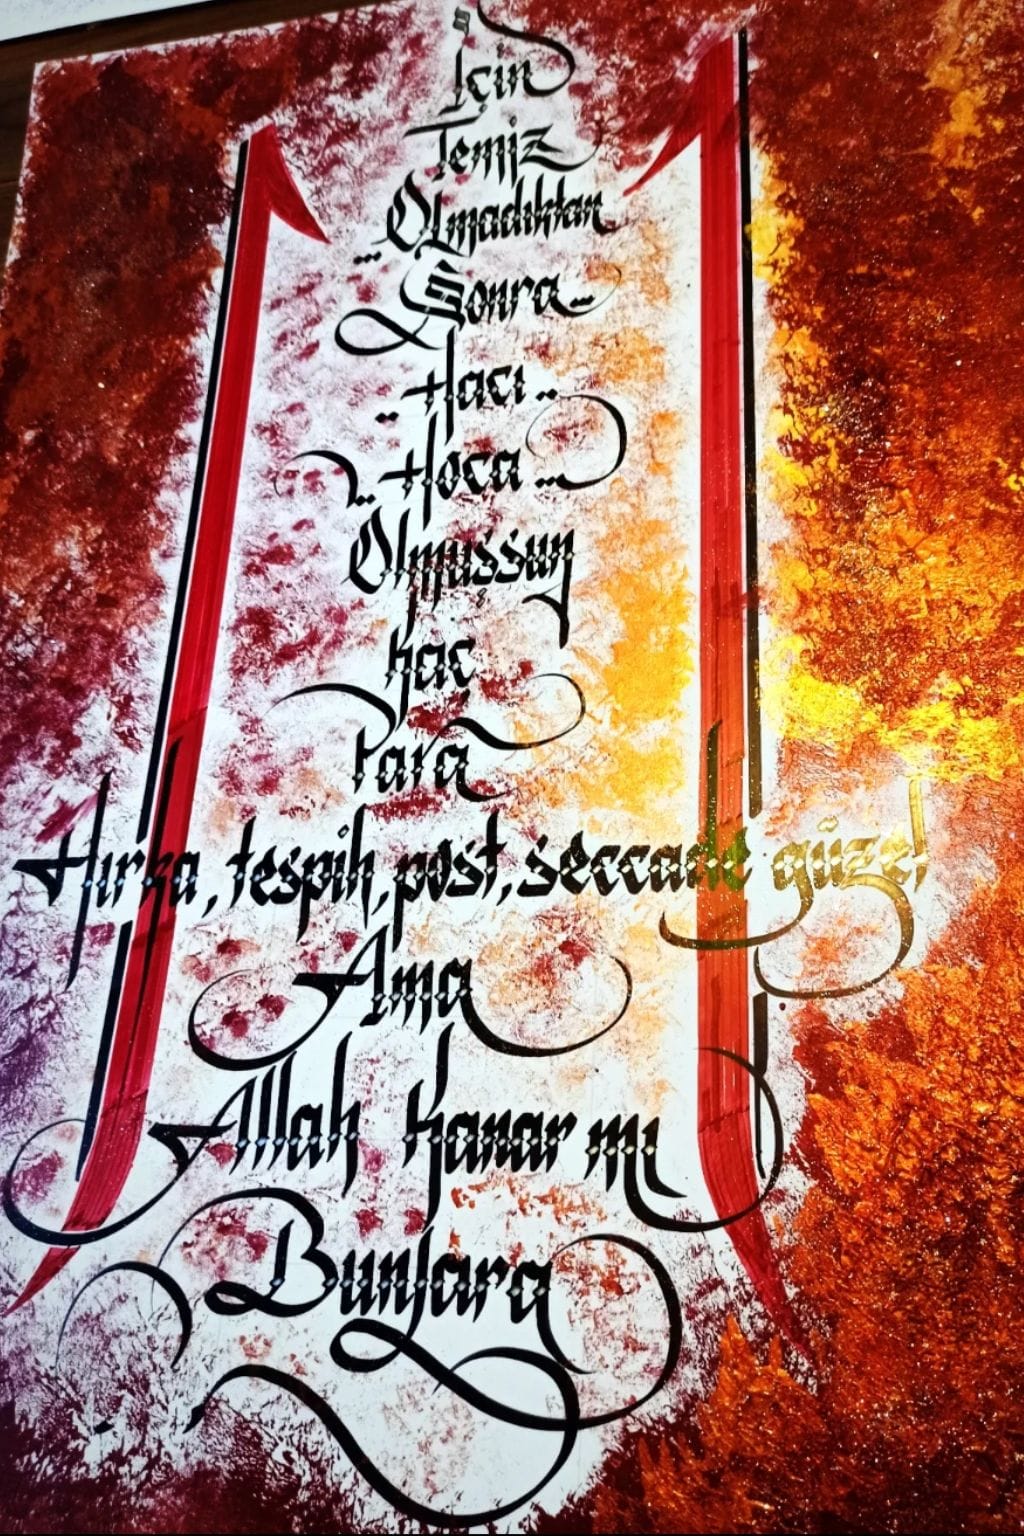 İçin
Temiz
Olmadıktan
Sonra..
..Hacı..
..Hoca...
Olmuşsun
Kaç
Para
Hırka, tespih, post, seccade güzel
Ama
Allah Kanar mı
Bunlara